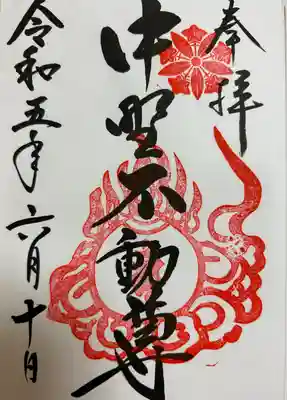 奉拝
中野不動尊
令和五年六月十日